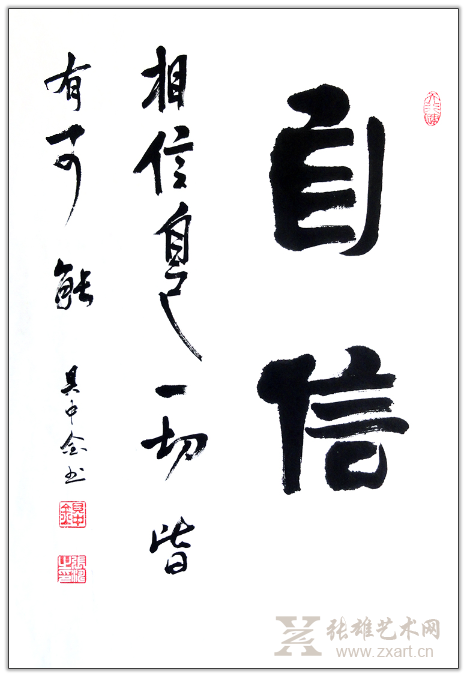 自信
相信自己一切皆
有可能
吴中金书
张雄艺术网
www.zxart.cn